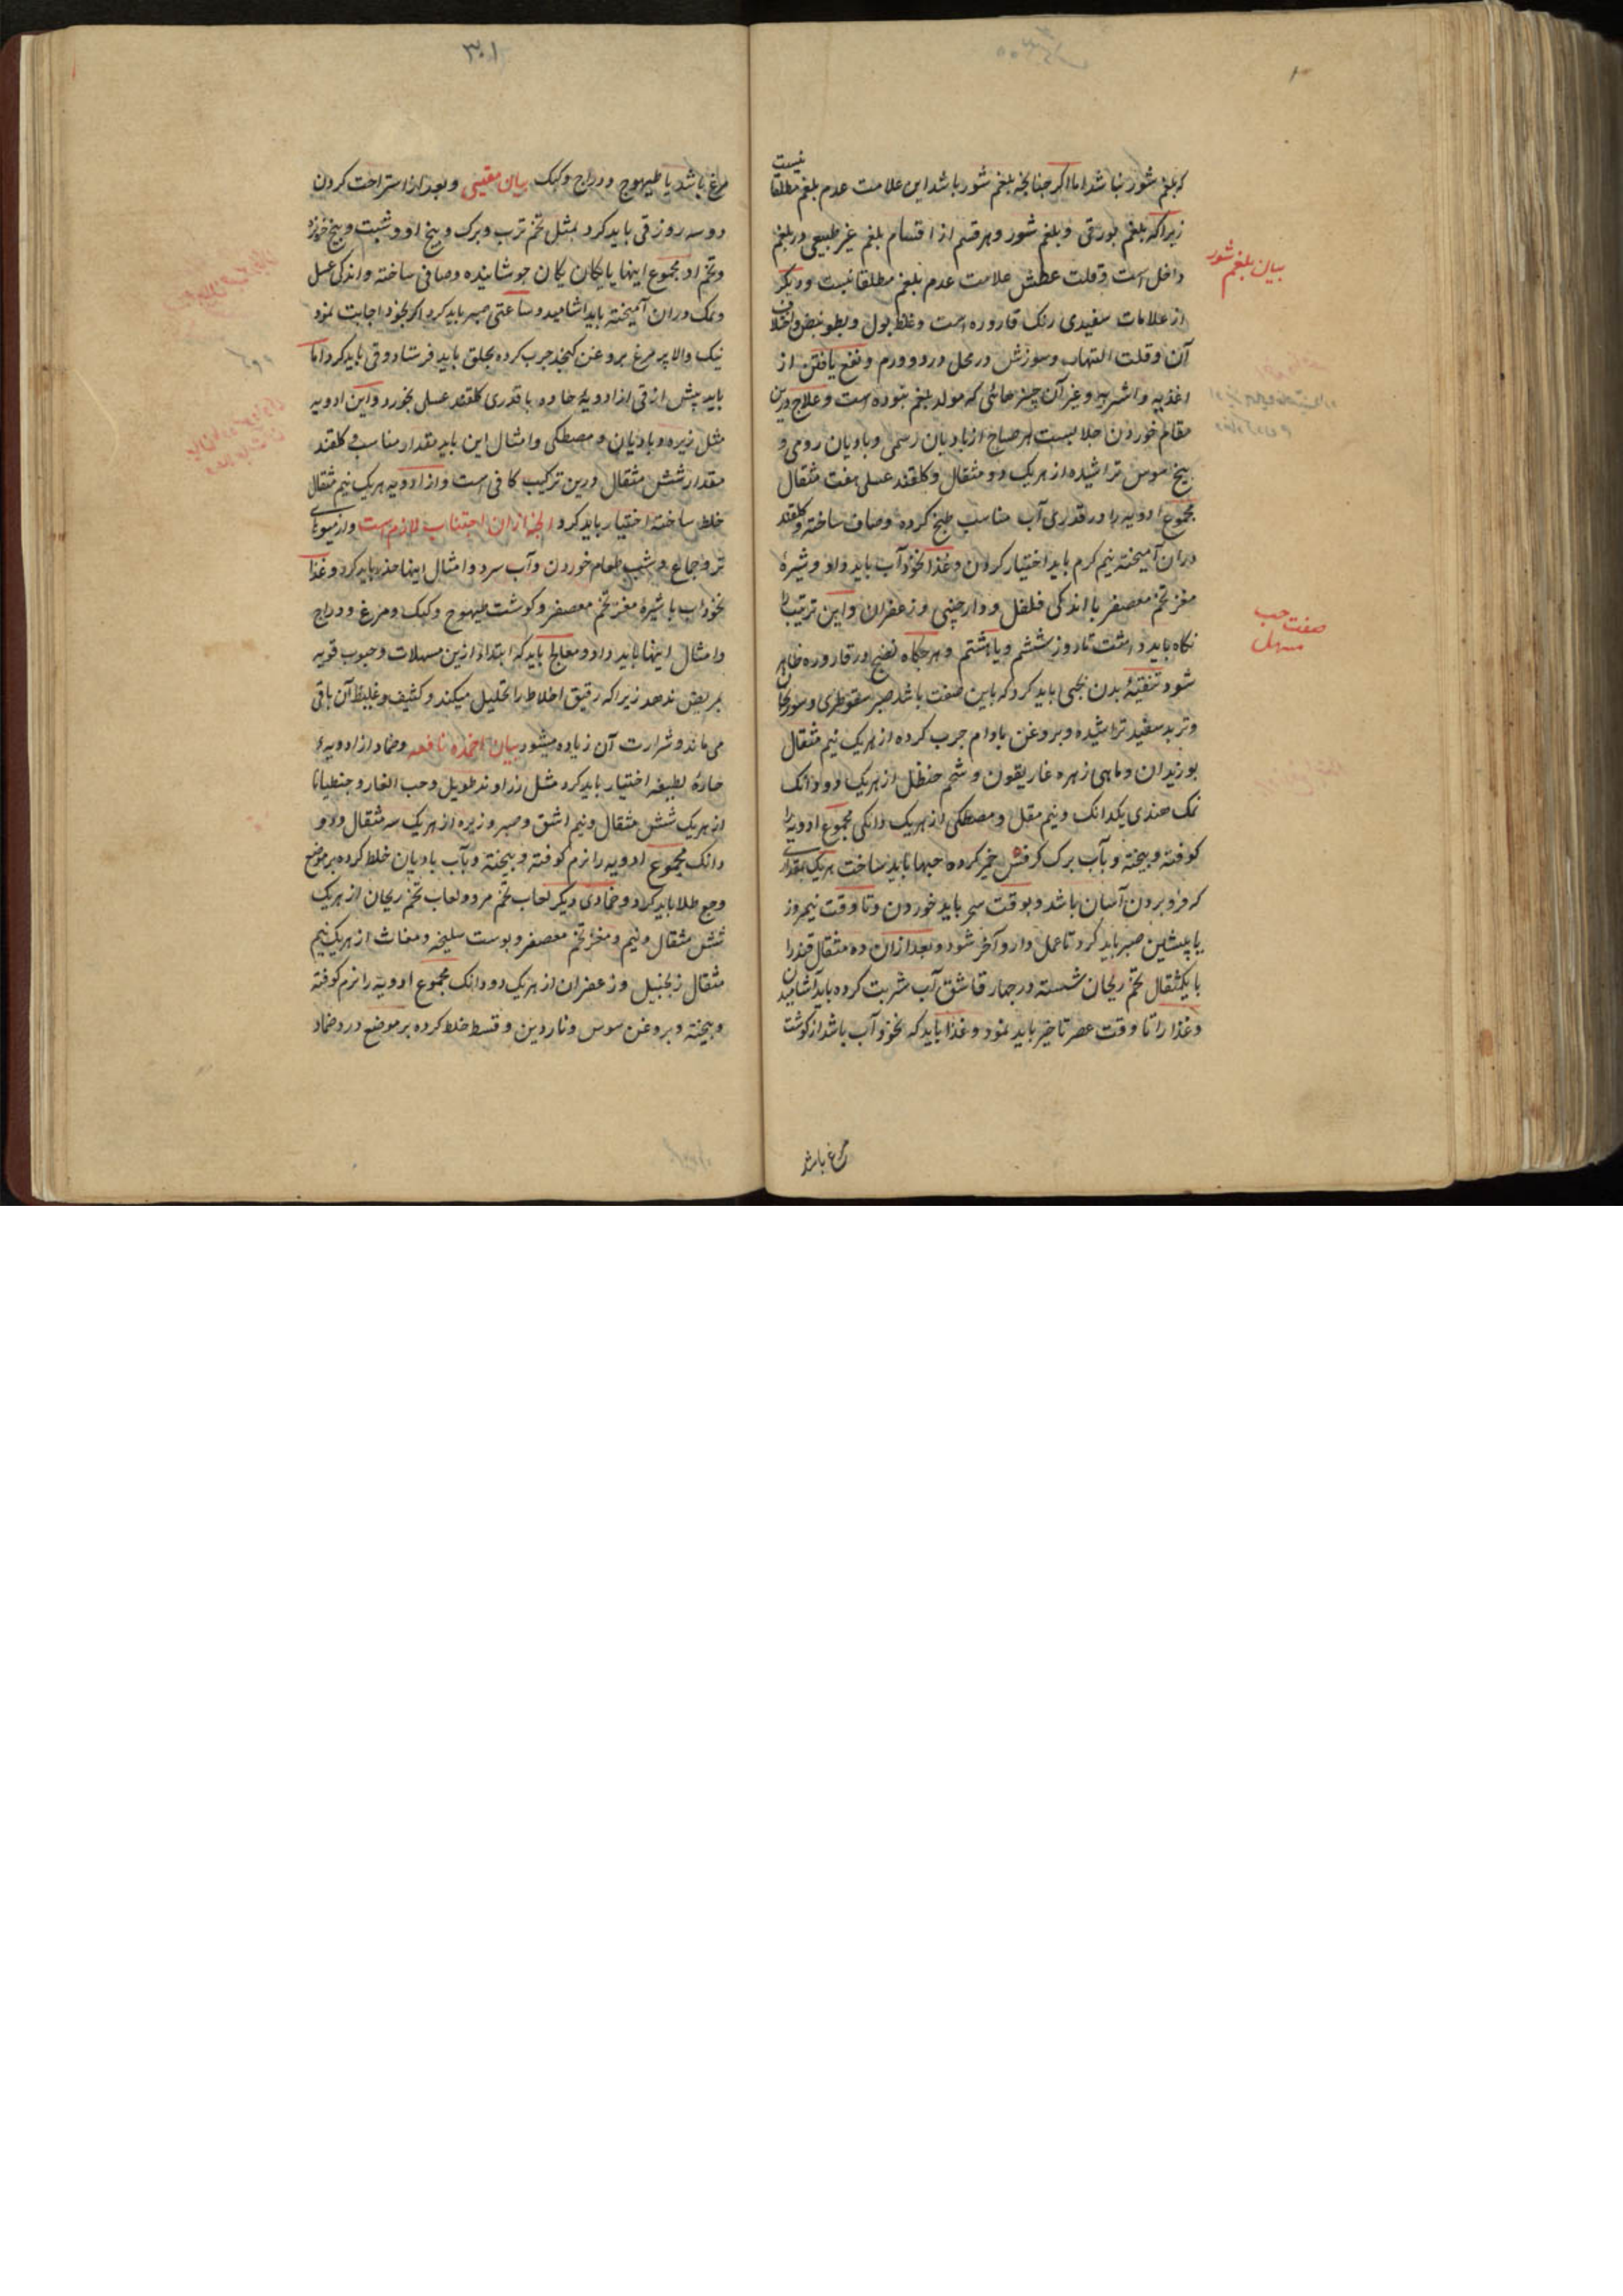 نیست
که بلغم شور نباشد اما اگر چنانچه بلغم شور باشد این علامت عدم بلغم مطلقا
زیرا که بلغم بورقی و بلغم شور و هر قسم از اقسام بلغم غیر طبیعی در بلغم
بیان بلغم شور
داخل است و قلت عطش علامت عدم بلغم مطلقا نیست و دیگر
از علامات سفیدی رنک قاروره است و غلظ بول و بطو نبض و اختلاف
آن و قلت التهاب و سوزش در محل درد و ورم و نفع یافتن از
اغذیه و اشربه و غیر آن چیزهائی که مولد بلغم نبوده است و علاج درین
مقام خوردن جلابیست هر صباح از بادیان رسمی و بادیان رومی و
بیخ سوس تراشیده از هر یک دو مثقال و کلقند عسلی هفت مثقال
مجموع ادویه را در قدری آب مناسب طبخ کرده و صاف ساخته و کلقند
دران آمیخته نیم کرم باید اختیار کردن و غذا نخودآب باید داد و شیرهٔ
مغز تخم معصفر با اندکی فلفل و دارچینی و زعفران و این ترتیب را
صفت حب
مسهل
نکاه باید داشت تا روز ششم و یا هشتم و هرکاه نضج در قاروره ظاهر
شود تنقیهٔ بدن بحبی باید کرد که باین صفت باشد صبر سقوطری و سورنجان
و تربد سفید تراشیده و بروغن بادام چرب کرده از هر یک نیم مثقال
بوزیدان و ماهی زهره غاریقون و شحم حنظل از هر یک دو دانک
نمک هندی یکدانک و نیم مقل و مصطکی از هر یک دانکی مجموع ادویه را
کوفته و بیخته و بآب برک کرفس خمیر کرده حبها باید ساخت هر یک بمقداری
که فرو بردن آسان باشد و بوقت سحر باید خوردن و تا وقت نیمروز
یا پیشین صبر باید کرد تا عمل دارو آخر شود و بعد ازان ده مثقال قند را
با یکمثقال تخم ریحان شسته در چهار قاشق آب شربت کرده باید آشامیدن
و غذا را تا وقت عصر تاخیر باید نمود و غذا باید که نخودآب باشد از کوشت
مرغ باشد
۳۰۱
مرغ باشد یا طیهوج و دراج و کبک بیان مقییٔ و بعد از استراحت کردن
دو سه روز قی باید کرد بمثل تخم ترب و برک و بیخ او و شبت و بیخ خربزه
و تخم او مجموع اینها یا یکان یکان جوشانیده و صافی ساخته و اندکی عسل
و نمک دران آمیخته باید اشامید و ساعتی صبر باید کرد اکر بخود اجابت نمود
نیک والا پر مرغ بروغن کنجد چرب کرده بحلق باید فرستاد و قی باید کرد اما
باید پیش از قی از ادویهٔ حاده با قدری کلقند عسلی بخورد و این ادویه
مثل زیره و بادیان و مصطکی و امثال این باید مقدار مناسب و کلقند
مقدار شش مثقال درین ترکیب کافی است و از ادویه هر یک نیم مثقال
خلط ساخته اختیار باید کرد و انچه ازان اجتناب لازم است و از میوهای
تر و جماع و شب طعام خوردن و آب سرد و امثال اینها حذر باید کرد و غذا
نخوداب با شیرهٔ مغز تخم معصفر و کوشت طیهوج و کبک و مرغ و دراج
و امثال اینها باید داد و معالج باید که ابتدا ازین مسهلات و حبوب قویه
بمریض ندهد زیرا که رقیق اخلاط را تحلیل میکند و کثیف و غلیظ آن باقی
می‌ماند و شرارت آن زیاده میشود بیان اضمده نافعه و ضماد از ادویهٔ
حارهٔ لطیفه اختیار باید کرد مثل زراوند طویل و حب الغار و جنطیانا
از هر یک شش مثقال و نیم اشق و صبر و زیره از هر یک سه مثقال و دو
دانک مجموع ادویه را نرم کوفته و بیخته و بآب بادیان خلط کرده بر موضع
وجع طلا باید کرد و ضمادی دیکر لعاب تخم مرو و لعاب تخم ریحان از هر یک
شش مثقال و نیم و مغز تخم معصفر و پوست سلیخه و مغاث از هر یک نیم
مثقال زنجبیل و زعفران از هر یک دو دانک مجموع ادویه را نرم کوفته
و بیخته و بروغن سوس و ناردین و قسط خلط کرده بر موضع درد ضماد